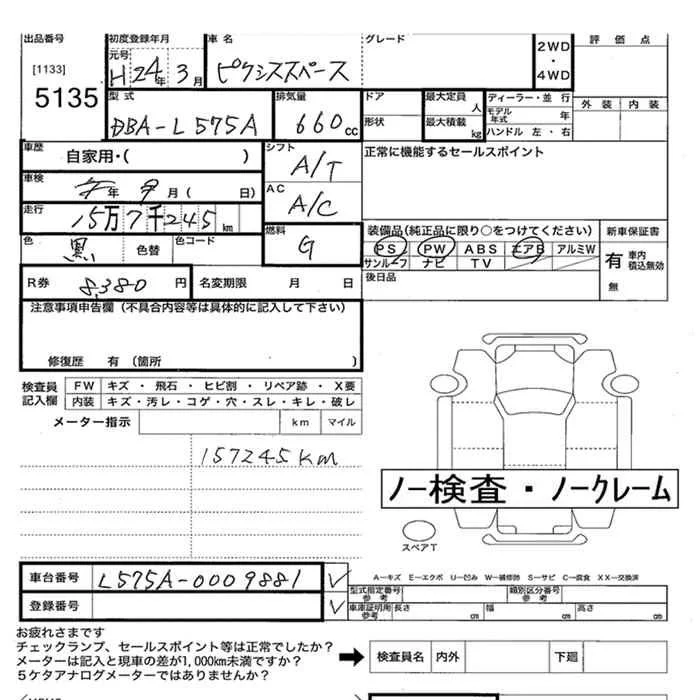 出品番号 初度登録年月 車名 グレード 評価点
[1133] 元号 2WD・4WD
5135 H24年3月 ピクシススペース
型式 排気量 ドア 最大定員 人 ディーラー・並行 外装 内装
DBA-L575A 660cc 形状 最大積載 kg モデル年式 年
ハンドル 左・右
車歴 自家用・( ) シフト A/T 正常に機能するセールスポイント
車検 年9月( 日) AC A/C
走行 15万7千245km
色 黒 色替 色コード 燃料 G
装備品(純正品に限り○をつけてください) 新車保証書
PS PW ABS エアB アルミW 有 車内積込無効
サンルーフ ナビ TV 無
R券 8,380円 名変期限 月 日 後日品
注意事項申告欄(不具合内容等は具体的に記入して下さい)
修復歴 有(箇所 )
検査員記入欄 FW キズ・飛石・ヒビ割・リペア跡・X要
内装 キズ・汚レ・コゲ・穴・スレ・キレ・破レ
メーター指示 km マイル
157245km
ノー検査・ノークレーム
スペアT
車台番号 L575A-0009881 ✓
A-キズ E-エクボ U-凹み W-補修跡 S-サビ C-腐食 XX-交換済
型式指定番号 参考 類別区分番号 参考
登録番号 ✓ 車庫証明用 参考 長さ cm 幅 cm 高さ cm
お疲れさまです
チェックランプ、セールスポイント等は正常でしたか?
メーターは記入と現車の差が1,000km未満ですか?
5ケタアナログメーターではありませんか?
➡ 検査員名 内外 下廻